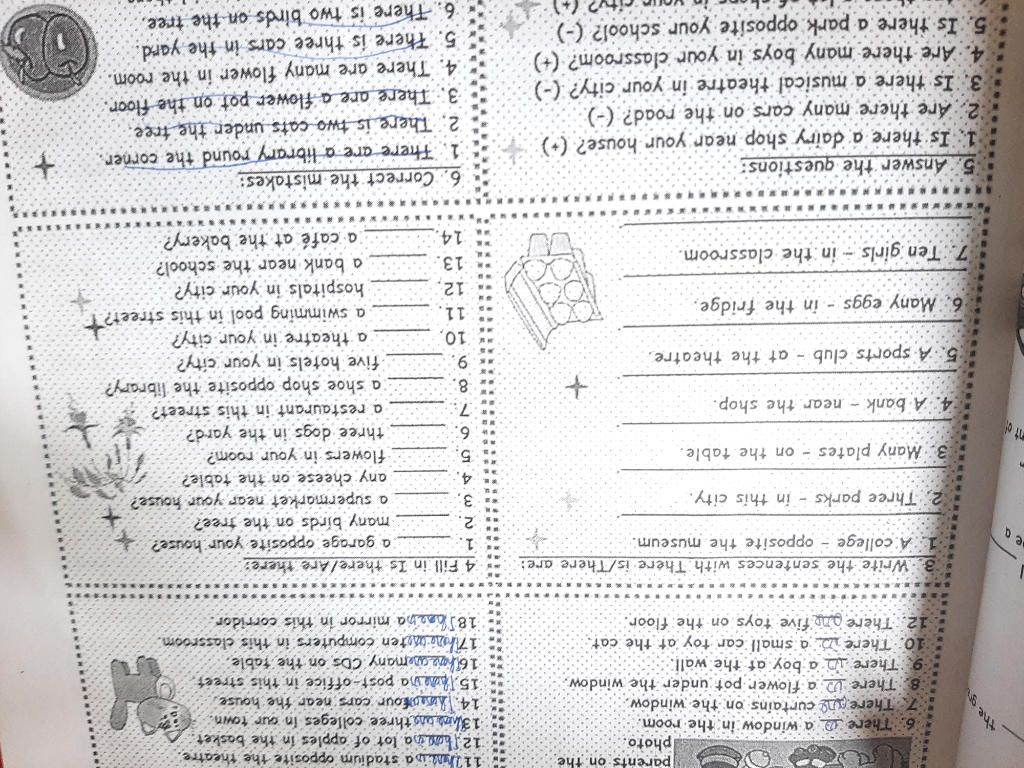 on the parents
photo
6. There is a window in the room.
7. There are curtains on the window.
8. There is a flower pot under the window.
9. There is a boy at the wall.
10. There is a small car toy at the cat.
12. There are five toys on the floor.
11. There is a stadium opposite the theatre
12. There is a lot of apples in the basket
13. There are three colleges in our town.
14. There are four cars near the house.
15. There is a post-office in this street
16. There are many CDs on the table
17. There are ten computers in this classroom.
18. There is a mirror in this corridor.
3. Write the sentences with There is/There are:
1. A college – opposite the museum.
2. Three parks – in this city.
3. Many plates – on the table.
4. A bank – near the shop.
5. A sports club – at the theatre.
6. Many eggs – in the fridge.
7. Ten girls – in the classroom
4 Fill in Is there/Are there:
1. ______ a garage opposite your house?
2. ______ many birds on the tree?
3. ______ a supermarket near your house?
4. ______ any cheese on the table?
5. ______ flowers in your room?
6. ______ three dogs in the yard?
7. ______ a restaurant in this street?
8. ______ a shoe shop opposite the library?
9. ______ five hotels in your city?
10. ______ a theatre in your city?
11. ______ a swimming pool in this street?
12. ______ hospitals in your city?
13. ______ a bank near the school?
14. ______ a café at the bakery?
5 Answer the questions:
1. Is there a dairy shop near your house? (+)
2. Are there many cars on the road? (-)
3. Is there a musical theatre in your city? (-)
4. Are there many boys in your classroom? (+)
5. Is there a park opposite your school? (-)
6. Correct the mistakes:
1. There are a library round the corner.
2. There is two cats under the tree.
3. There are a flower pot on the floor
4. There are many flower in the room.
5. There is three cars in the yard.
6. There is two birds on the tree.